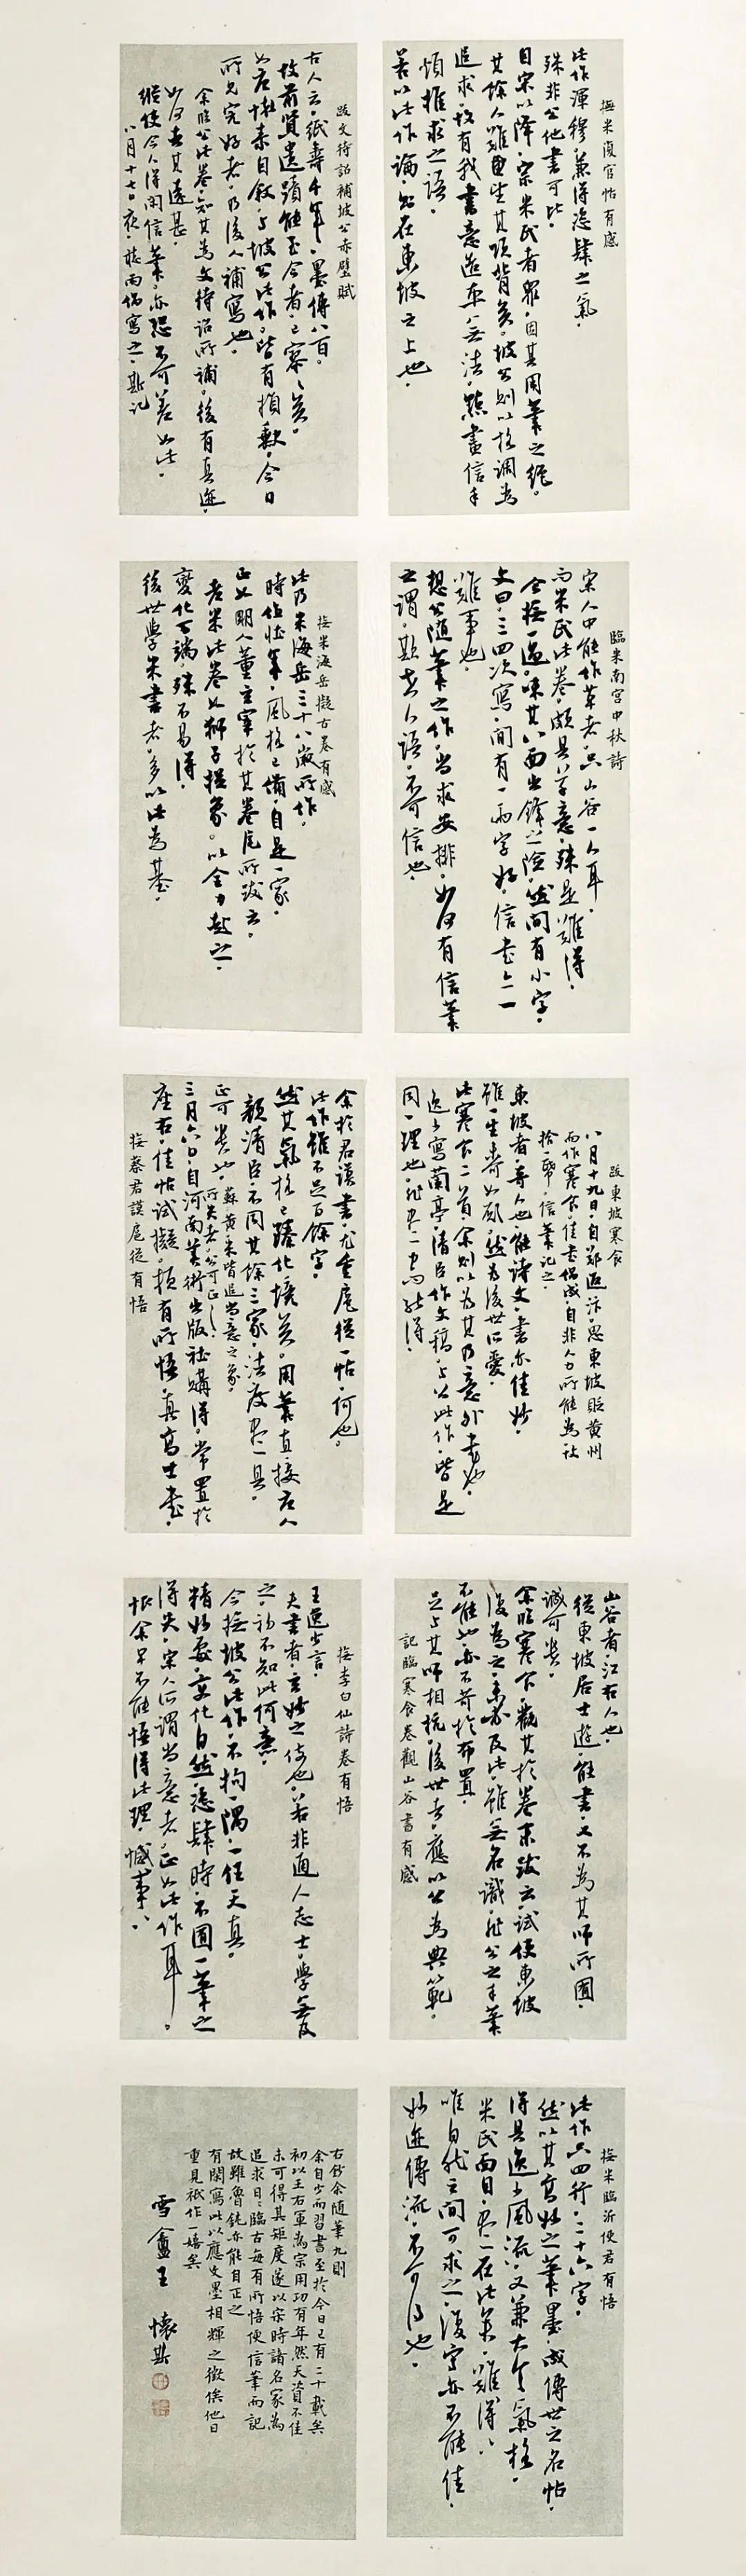 撫米復官帖有感
此作渾穆兼得恣肆之氣
殊非公他書可比
自宋以降宗米氏者眾因其用筆之絕
其餘人難望其項背矣坡公則以格調為
追求故有我書意造本無法點畫信手
煩推求之語
若以此作論知在東坡之上也
跋文待詔補坡公赤壁賦
古人云紙壽千年墨傳八百
故前賢遺蹟能至今者已寥寥矣
如唐懷素自敘與坡公此作皆有損缺今日
所見完好者乃後人補寫也
余臨公此卷知其為文待詔所補後有真迹
如何去其遠甚
縱使今人得閑信筆亦恐不可若此
八月十七日夜聽雨偶寫之斯記
臨米南宮中秋詩
宋人中能作草者只山谷一人耳
而米氏此卷頗具草意殊是難得
今撫一過味其八面出鋒之險然間有小字
文曰三四次寫間有一兩字好信書亦一
難事也
想公隨筆之作尚求安排如何有信筆
之謂欺老人語不可信也
撫米海岳擬古卷有感
此乃米海岳三十八歲所作
時值壯年風格已備自是一家
正如明人董玄宰於其卷尾所跋云
老米此卷如獅子捉象以全力赴之
變化百端殊不易得
後世學米書者多以此為基
跋東坡寒食
八月十九日自鄭返汴思東坡貶黃州
而作寒食佳書偶成自非人力所能為社
拾一幣信筆記之
東坡者奇人也能詩文書亦佳妙
雖一生壽如願然為後世所愛
此寒食二首余則以為其乃意外書也
逸少寫蘭亭清臣作文稿與公此作皆是
同一理也非思
撫蔡君謨扈從有悟
余於君謨書尤重扈從一帖何也
此作雖不足百餘字
然其氣格已臻化境矣用筆直接古人
顏清臣不同其餘三家法度思一具
正可貴也蘇黃米皆追尚意之象
所失者公可正之
三月六日自河南美術出版社購得常置於
座右佳帖試擬頗有所悟真高士書
山谷者江右人也
從東坡居士遊能書又不為其師所囿
誠可貴
余臨寒食觀其於卷末跋云試使東坡
復為之未必及此雖無名識非公之手筆
不能也亦不苛於布置
足與其師相抗後世書應以公為典範
記臨寒食卷觀山谷書有感
撫李白仙詩卷有悟
王逸少言
夫書者玄妙之伎也若非通人志士學無及
之初不知此何意
今撫坡公此作不拘一隅一任天真
精妙處變化自然恣肆時不囿一筆之
得失宋人所謂尚意者正如此作耳
恨余早不能悟得此理憾事
撫米臨沂使君有悟
此作只四行三十六字
然以其高妙之筆墨成傳世之名帖
得具逸少風流又兼大令氣格
米氏面目思一在此筆難得
唯自然之間可求之復寫亦不能佳
妙迹傳流不可多得也
右鈔余隨筆九則
余自少而習書至於今日已有二十載矣
初以王右軍為宗用功有年然天資不佳
未可得其矩度遂以宋時諸名家為
追求日日臨古每有所悟便信筆而記
故雖魯鈍亦能自正之
有閑寫此以應文墨相輝之徵俟他日
重見祇作一嬉矣
雪盦王懷斯